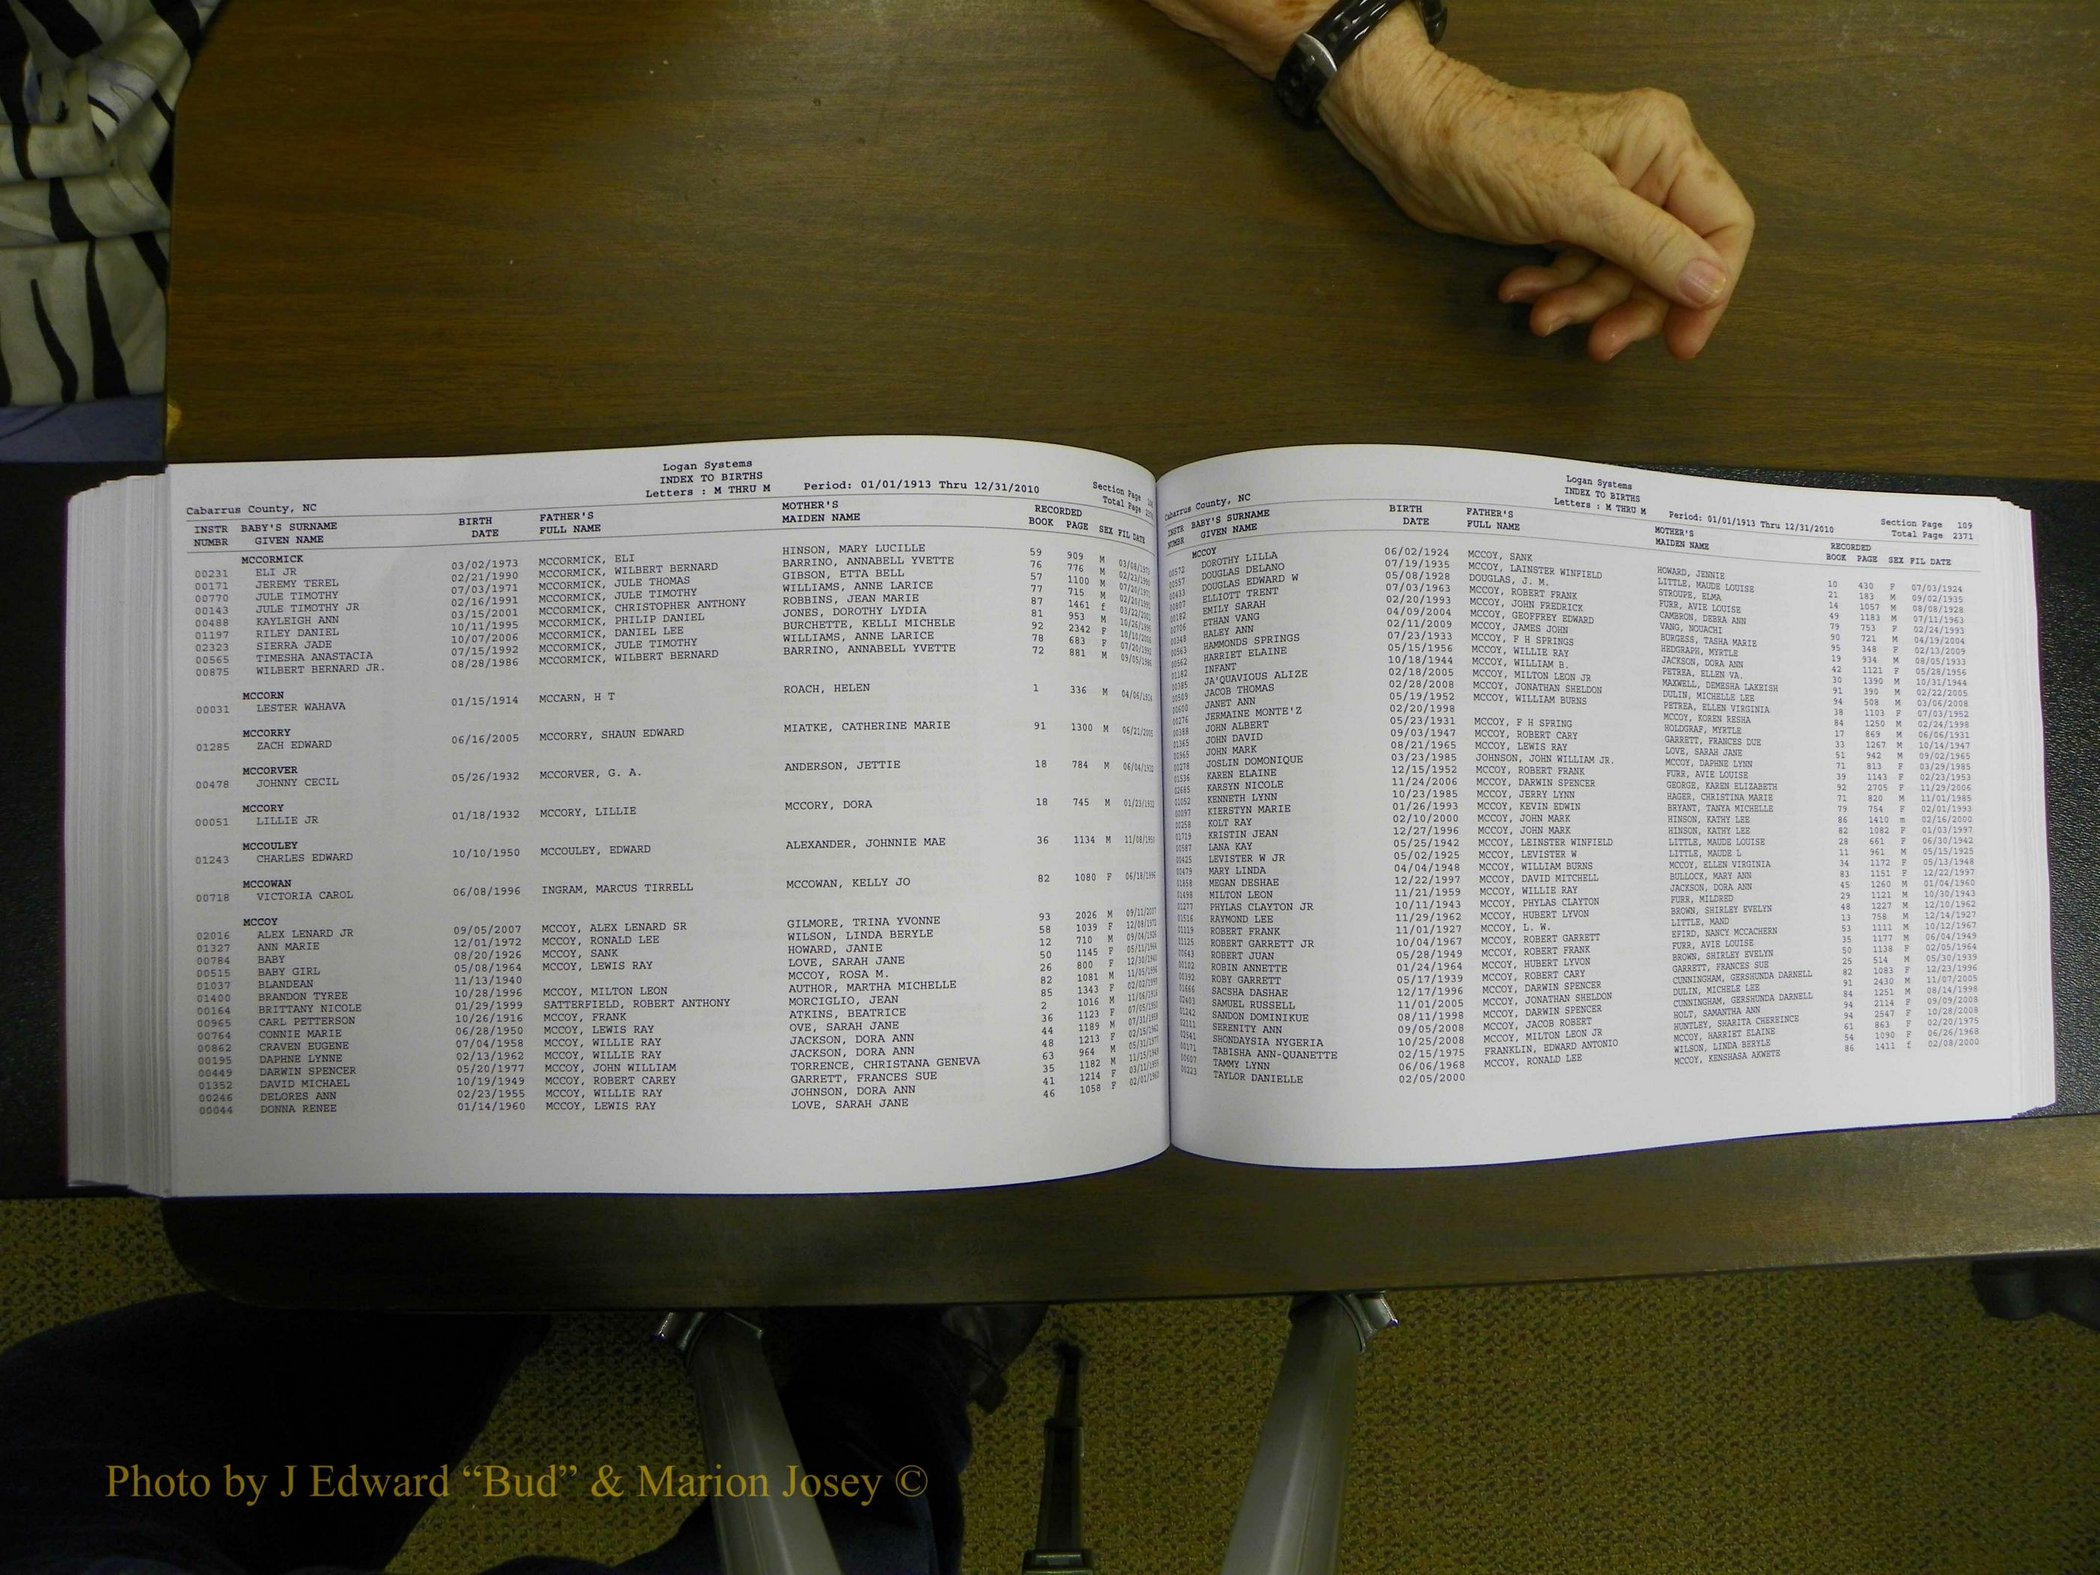 Logan Systems
INDEX TO BIRTHS
Cabarrus County, NC Letters : M THRU M Period: 01/01/1913 Thru 12/31/2010 Section Page
Total Page
INSTR BABY'S SURNAME BIRTH FATHER'S MOTHER'S RECORDED
NUMBR GIVEN NAME DATE FULL NAME MAIDEN NAME BOOK PAGE SEX FIL DATE
MCCORMICK
00231 ELI JR 03/02/1973 MCCORMICK, ELI HINSON, MARY LUCILLE 59 909 M 03/08/1973
00171 JEREMY TEREL 02/21/1990 MCCORMICK, WILBERT BERNARD BARRINO, ANNABELL YVETTE 76 776 M 02/23/1990
00770 JULE TIMOTHY 07/03/1971 MCCORMICK, JULE THOMAS GIBSON, ETTA BELL 57 1100 M 07/20/1971
00143 JULE TIMOTHY JR 02/16/1991 MCCORMICK, JULE TIMOTHY WILLIAMS, ANNE LARICE 77 715 M 02/20/1991
00488 KAYLEIGH ANN 03/15/2001 MCCORMICK, CHRISTOPHER ANTHONY ROBBINS, JEAN MARIE 87 1461 f 03/22/2001
01197 RILEY DANIEL 10/11/1995 MCCORMICK, PHILIP DANIEL JONES, DOROTHY LYDIA 81 953 M 10/26/1995
02323 SIERRA JADE 10/07/2006 MCCORMICK, DANIEL LEE BURCHETTE, KELLI MICHELE 92 2342 F 10/10/2006
00565 TIMESHA ANASTACIA 07/15/1992 MCCORMICK, JULE TIMOTHY WILLIAMS, ANNE LARICE 78 683 F 07/20/1992
00875 WILBERT BERNARD JR. 08/28/1986 MCCORMICK, WILBERT BERNARD BARRINO, ANNABELL YVETTE 72 881 M 09/05/1986
MCCORN
00031 LESTER WAHAVA 01/15/1914 MCCARN, H T ROACH, HELEN 1 336 M 04/06/1914
MCCORRY
01285 ZACH EDWARD 06/16/2005 MCCORRY, SHAUN EDWARD MIATKE, CATHERINE MARIE 91 1300 M 06/21/2005
MCCORVER
00478 JOHNNY CECIL 05/26/1932 MCCORVER, G. A. ANDERSON, JETTIE 18 784 M 06/04/1932
MCCORY
00051 LILLIE JR 01/18/1932 MCCORY, LILLIE MCCORY, DORA 18 745 M 01/23/1932
MCCOULEY
01243 CHARLES EDWARD 10/10/1950 MCCOULEY, EDWARD ALEXANDER, JOHNNIE MAE 36 1134 M 11/08/1950
MCCOWAN
00718 VICTORIA CAROL 06/08/1996 INGRAM, MARCUS TIRRELL MCCOWAN, KELLY JO 82 1080 F 06/18/1996
MCCOY
02016 ALEX LENARD JR 09/05/2007 MCCOY, ALEX LENARD SR GILMORE, TRINA YVONNE 93 2026 M 09/11/2007
01327 ANN MARIE 12/01/1972 MCCOY, RONALD LEE WILSON, LINDA BERYLE 58 1039 F 12/08/1972
00784 BABY 08/20/1926 MCCOY, SANK HOWARD, JANIE 12 710 M 09/04/1926
00515 BABY GIRL 05/08/1964 MCCOY, LEWIS RAY LOVE, SARAH JANE 50 1145 F 05/11/1964
01037 BLANDEAN 11/13/1940 MCCOY, ROSA M. 26 800 F 12/30/1940
01400 BRANDON TYREE 10/28/1996 MCCOY, MILTON LEON AUTHOR, MARTHA MICHELLE 82 1081 M 11/05/1996
00164 BRITTANY NICOLE 01/29/1999 SATTERFIELD, ROBERT ANTHONY MORCIGLIO, JEAN 85 1343 F 02/02/1999
00965 CARL PETTERSON 10/26/1916 MCCOY, FRANK ATKINS, BEATRICE 2 1016 M 11/06/1916
00764 CONNIE MARIE 06/28/1950 MCCOY, LEWIS RAY OVE, SARAH JANE 36 1123 F 07/05/1950
00862 CRAVEN EUGENE 07/04/1958 MCCOY, WILLIE RAY JACKSON, DORA ANN 44 1189 M 07/31/1958
00195 DAPHNE LYNNE 02/13/1962 MCCOY, WILLIE RAY JACKSON, DORA ANN 48 1213 F 02/15/1962
00449 DARWIN SPENCER 05/20/1977 MCCOY, JOHN WILLIAM TORRENCE, CHRISTANA GENEVA 63 964 M 05/31/1977
01352 DAVID MICHAEL 10/19/1949 MCCOY, ROBERT CAREY GARRETT, FRANCES SUE 35 1182 M 11/15/1949
00246 DELORES ANN 02/23/1955 MCCOY, WILLIE RAY JOHNSON, DORA ANN 41 1214 F 03/11/1955
00044 DONNA RENEE 01/14/1960 MCCOY, LEWIS RAY LOVE, SARAH JANE 46 1058 F 02/01/1960
Logan Systems
INDEX TO BIRTHS
Cabarrus County, NC Letters : M THRU M Period: 01/01/1913 Thru 12/31/2010 Section Page 109
Total Page 2371
INSTR BABY'S SURNAME BIRTH FATHER'S MOTHER'S RECORDED
NUMBR GIVEN NAME DATE FULL NAME MAIDEN NAME BOOK PAGE SEX FIL DATE
MCCOY
00572 DOROTHY LILLA 06/02/1924 MCCOY, SANK HOWARD, JENNIE 10 430 F 07/03/1924
00557 DOUGLAS DELANO 07/19/1935 MCCOY, LAINSTER WINFIELD LITTLE, MAUDE LOUISE 21 183 M 09/02/1935
00433 DOUGLAS EDWARD W 05/08/1928 DOUGLAS, J. M. STROUPE, ELMA 14 1057 M 08/08/1928
00807 ELLIOTT TRENT 07/03/1963 MCCOY, ROBERT FRANK FURR, AVIE LOUISE 49 1183 M 07/11/1963
00182 EMILY SARAH 02/20/1993 MCCOY, JOHN FREDRICK CAMBRON, DEBRA ANN 79 753 F 02/24/1993
00706 ETHAN VANG 04/09/2004 MCCOY, GEOFFREY EDWARD VANG, NOUACHI 90 721 M 04/19/2004
00348 HALEY ANN 02/11/2009 MCCOY, JAMES JOHN BURGESS, TASHA MARIE 95 348 F 02/13/2009
00563 HAMMONDS SPRINGS 07/23/1933 MCCOY, F H SPRINGS HEDGRAPH, MYRTLE 19 934 M 08/05/1933
00562 HARRIET ELAINE 05/15/1956 MCCOY, WILLIE RAY JACKSON, DORA ANN 42 1121 F 05/28/1956
01182 INFANT 10/18/1944 MCCOY, WILLIAM B. PETREA, ELLEN VA. 30 1390 M 10/31/1944
00385 JA'QUAVIOUS ALIZE 02/18/2005 MCCOY, MILTON LEON JR MAXWELL, DEMESHA LAKEISH 91 390 M 02/22/2005
00509 JACOB THOMAS 02/28/2008 MCCOY, JONATHAN SHELDON DULIN, MICHELLE LEE 94 508 M 03/06/2008
00600 JANET ANN 05/19/1952 MCCOY, WILLIAM BURNS PETREA, ELLEN VIRGINIA 38 1103 F 07/03/1952
00276 JERMAINE MONTE'Z 02/20/1998 MCCOY, KOREN RESHA 84 1250 M 02/24/1998
00388 JOHN ALBERT 05/23/1931 MCCOY, F H SPRING HOLDGRAF, MYRTLE 17 869 M 06/06/1931
01365 JOHN DAVID 09/03/1947 MCCOY, ROBERT CARY GARRETT, FRANCES DUE 33 1267 M 10/14/1947
00965 JOHN MARK 08/21/1965 MCCOY, LEWIS RAY LOVE, SARAH JANE 51 942 M 09/02/1965
00278 JOSLIN DOMONIQUE 03/23/1985 JOHNSON, JOHN WILLIAM JR. MCCOY, DAPHNE LYNN 71 813 F 03/29/1985
01536 KAREN ELAINE 12/15/1952 MCCOY, ROBERT FRANK FURR, AVIE LOUISE 39 1143 F 02/23/1953
02685 KARSYN NICOLE 11/24/2006 MCCOY, DARWIN SPENCER GEORGE, KAREN ELIZABETH 92 2705 F 11/29/2006
01052 KENNETH LYNN 10/23/1985 MCCOY, JERRY LYNN HAGER, CHRISTINA MARIE 71 820 M 11/01/1985
00097 KIERSTYN MARIE 01/26/1993 MCCOY, KEVIN EDWIN BRYANT, TANYA MICHELLE 79 754 F 02/01/1993
00258 KOLT RAY 02/10/2000 MCCOY, JOHN MARK HINSON, KATHY LEE 86 1410 m 02/16/2000
01719 KRISTIN JEAN 12/27/1996 MCCOY, JOHN MARK HINSON, KATHY LEE 82 1082 F 01/03/1997
00587 LANA KAY 05/25/1942 MCCOY, LEINSTER WINFIELD LITTLE, MAUDE LOUISE 28 661 F 06/30/1942
00425 LEVISTER W JR 05/02/1925 MCCOY, LEVISTER W LITTLE, MAUDE L 11 961 M 05/15/1925
00479 MARY LINDA 04/04/1948 MCCOY, WILLIAM BURNS MCCOY, ELLEN VIRGINIA 34 1172 F 05/13/1948
01858 MEGAN DESHAE 12/22/1997 MCCOY, DAVID MITCHELL BULLOCK, MARY ANN 83 1151 F 12/22/1997
01498 MILTON LEON 11/21/1959 MCCOY, WILLIE RAY JACKSON, DORA ANN 45 1260 M 01/04/1960
01277 PHYLAS CLAYTON JR 10/11/1943 MCCOY, PHYLAS CLAYTON FURR, MILDRED 29 1121 M 10/30/1943
01516 RAYMOND LEE 11/29/1962 MCCOY, HUBERT LYVON BROWN, SHIRLEY EVELYN 48 1227 M 12/10/1962
01119 ROBERT FRANK 11/01/1927 MCCOY, L. W. LITTLE, MAND 13 758 M 12/14/1927
01125 ROBERT GARRETT JR 10/04/1967 MCCOY, ROBERT GARRETT EFIRD, NANCY MCCACHERN 53 1111 M 10/12/1967
00643 ROBERT JUAN 05/28/1949 MCCOY, ROBERT FRANK FURR, AVIE LOUISE 35 1177 M 06/04/1949
00102 ROBIN ANNETTE 01/24/1964 MCCOY, HUBERT LYVON BROWN, SHIRLEY EVELYN 50 1138 F 02/05/1964
00392 ROBY GARRETT 05/17/1939 MCCOY, ROBERT CARY GARRETT, FRANCES SUE 25 514 M 05/30/1939
01666 SACSHA DASHAE 12/17/1996 MCCOY, DARWIN SPENCER CUNNINGHAM, GERSHUNDA DARNELL 82 1083 F 12/23/1996
02403 SAMUEL RUSSELL 11/01/2005 MCCOY, JONATHAN SHELDON DULIN, MICHELE LEE 91 2430 M 11/07/2005
01242 SANDON DOMINIKUE 08/11/1998 MCCOY, DARWIN SPENCER CUNNINGHAM, GERSHUNDA DARNELL 84 1251 M 08/14/1998
02111 SERENITY ANN 09/05/2008 MCCOY, JACOB ROBERT HOLT, SAMANTHA ANN 94 2114 F 09/09/2008
02541 SHONDAYSIA NYGERIA 10/25/2008 MCCOY, MILTON LEON JR HUNTLEY, SHARITA CHEREINCE 94 2547 F 10/28/2008
00171 TABISHA ANN-QUANETTE 02/15/1975 FRANKLIN, EDWARD ANTONIO MCCOY, HARRIET ELAINE 61 863 F 02/20/1975
00607 TAMMY LYNN 06/06/1968 MCCOY, RONALD LEE WILSON, LINDA BERYLE 54 1090 F 06/26/1968
00223 TAYLOR DANIELLE 02/05/2000 MCCOY, KENSHASA AKWETE 86 1411 f 02/08/2000
Photo by J Edward “Bud” & Marion Josey ©